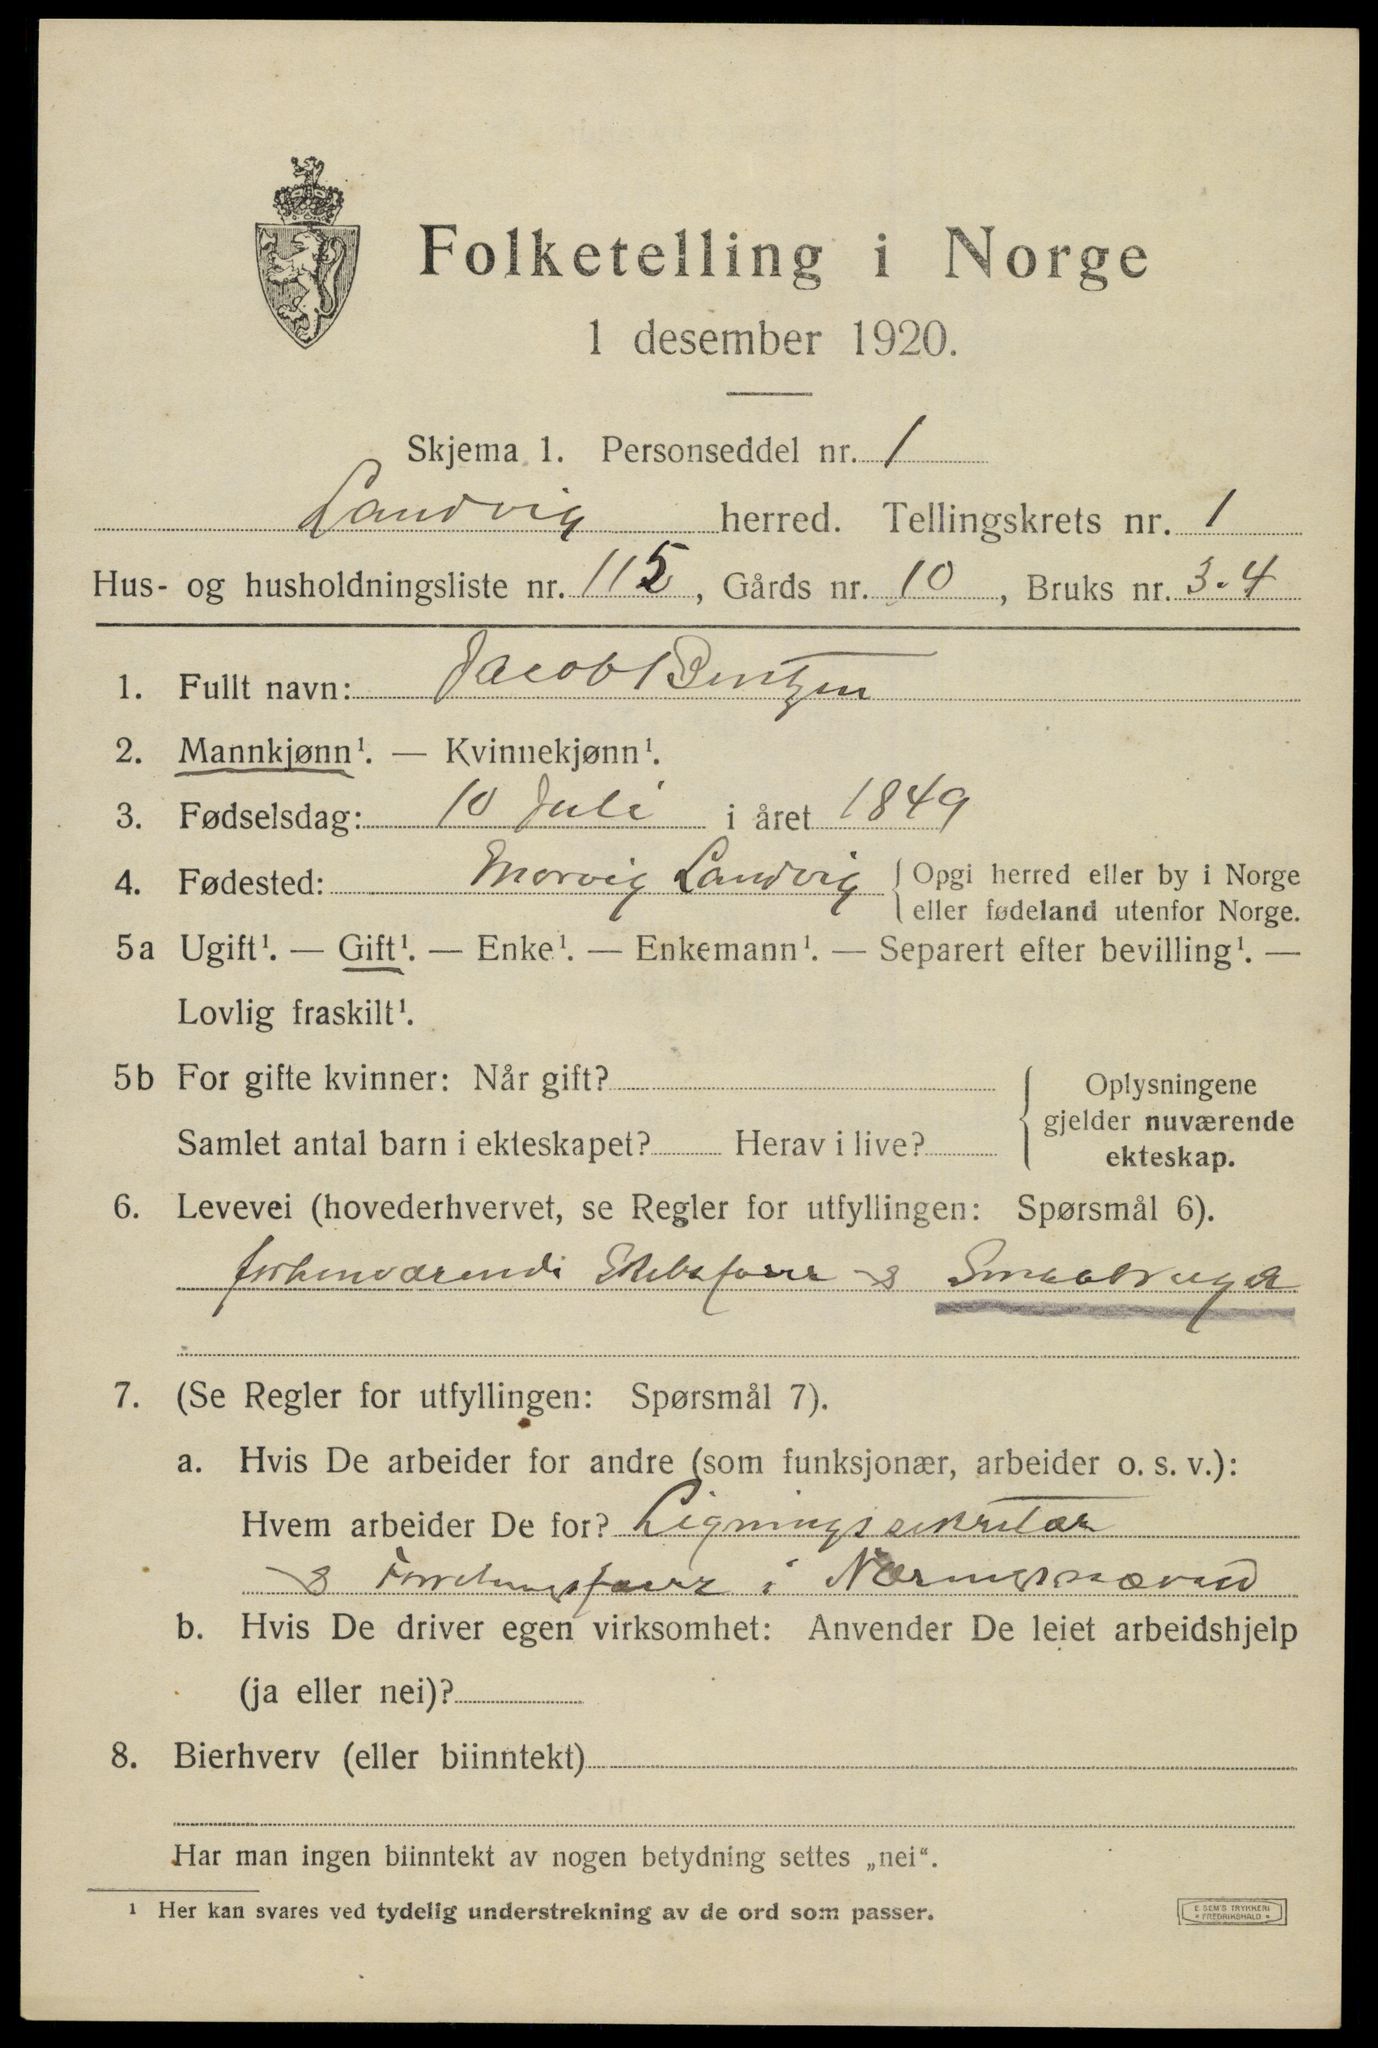 Folketelling i Norge
1 desember 1920.
Skjema 1. Personseddel nr. 1
Landvig herred. Tellingskrets nr. 1
Hus- og husholdningsliste nr. 115, Gårds nr. 10, Bruks nr. 3-4
1. Fullt navn: Jacob Bentzen
2. Mannkjønn¹. — Kvinnekjønn¹.
3. Fødselsdag: 10 Juli i året 1849
4. Fødested: Morvig Landvig { Opgi herred eller by i Norge
eller fødeland utenfor Norge.
5a Ugift¹. — Gift¹. — Enke¹. — Enkemann¹. — Separert efter bevilling¹. —
Lovlig fraskilt¹.
5b For gifte kvinner: Når gift?
Samlet antal barn i ekteskapet? Herav i live?
{ Oplysningene
gjelder nuværende
ekteskap.
6. Levevei (hovederhvervet, se Regler for utfyllingen: Spørsmål 6).
forhenværende Skibsfører & Smaabruger
7. (Se Regler for utfyllingen: Spørsmål 7).
a. Hvis De arbeider for andre (som funksjonær, arbeider o. s. v.):
Hvem arbeider De for? Ligningssekretær
& i
b. Hvis De driver egen virksomhet: Anvender De leiet arbeidshjelp
(ja eller nei)?
8. Bierhverv (eller biinntekt)
Har man ingen biinntekt av nogen betydning settes „nei“.
¹ Her kan svares ved tydelig understrekning av de ord som passer.
E SEM'S TRYKKERI
• FREDRIKSHALD •